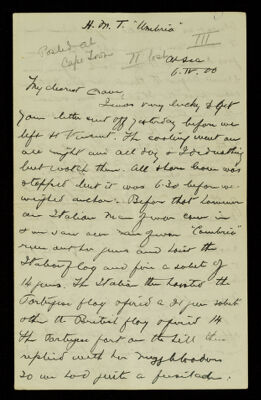 H. M. T. "Umbria"
III
Posted at
Cape Town
II lost
At Sea
6. IV. 00
My dearest
I was very lucky to get
your letter sent off yesterday before we
left St Vincent. The coaling went on
all night and all day & I did nothing
but watch them. All shore leave was
stopped but it was 6.30 before we
weighed anchor. Before that however
an Italian Man of war came in
& we saw our Man of war "Cambria"
run out her guns and hoist the
Italian flag and fire a salute of
14 guns. The Italian then hoisted the
Portuguese flag & fired a 21 gun salute
then the British flag & fired 14
The Portuguese fort on the hill then
replied with her
so we had quite a fusilade.